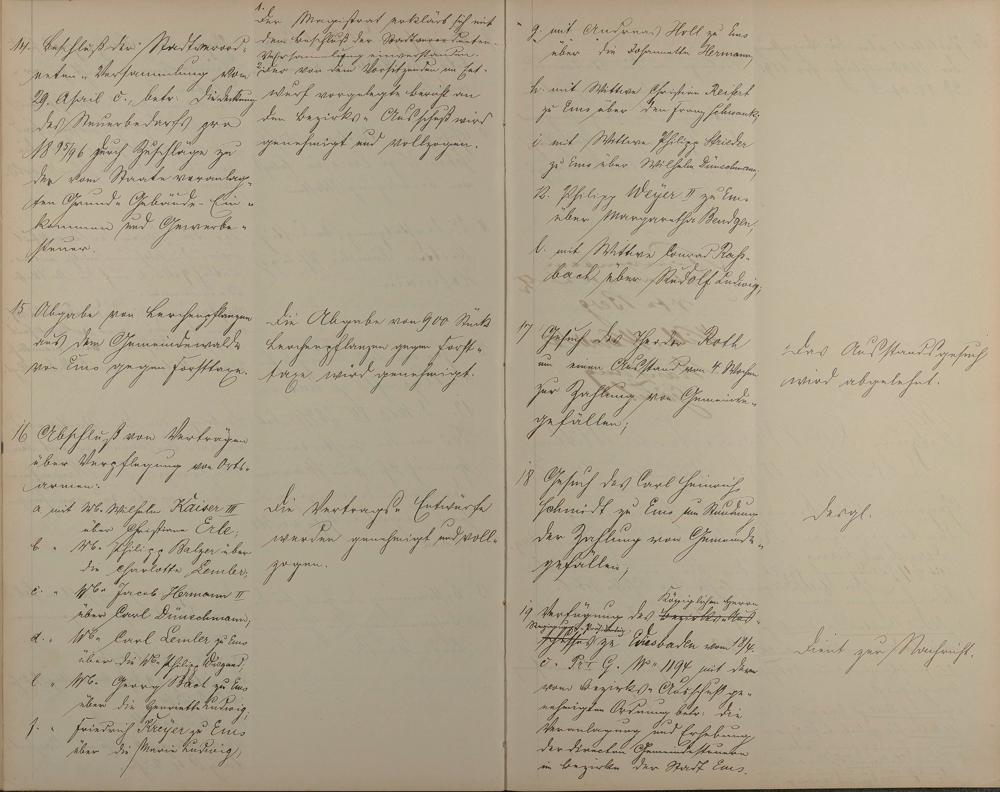 14. Beschluß der Stadtverord-
neten-Versammlung vom
29. April c., betr. die Deckung
des Steuerbedarfs pro
1895/96 durch Zuschläge zu
der vom Staate veranlag-
ten Grund- Gebäude- Ein-
kommen und Gewerbe-
steuer.
1. Der Magistrat erklärt sich mit
dem Beschluß der Stadtverordneten-
Versammlung einverstanden.
2. Der von dem Vorsitzenden im Ent-
wurf vorgelegte Bericht an
den Bezirks-Ausschuß wird
genehmigt und vollzogen.
15 Abgabe von Lerchenpflanzen
aus dem Gemeindewalde
von Ems gegen Forsttaxe.
Die Abgabe von 900 Stück
Lerchenpflanzen gegen Forst-
taxe wird genehmigt.
16 Abschluß von Verträgen
über Verpflegung von Orts-
armen:
a mit Wb. Wilhelm Kaiser III
über Christiane Erle;
b. " Wb. Philipp Balzer über
die Charlotte Lemler;
c. " Wb. Jacob Hermann II
über Carl Dünschmann;
d. " Wb. Carl Lemler zu Ems
über die Wb. Philipp
e. " Wb. Georg zu Ems
über die Henriette Ludwig;
f. " Friedrich Kreyer zu Ems
über die Marie Ludwig;
Die Vertrags-Entwürfe
werden genehmigt und voll-
zogen.
g. mit Andreas Holl zu Ems
über die Johannette Hermann;
h. mit Wittwe Christian Reifert
zu Ems über den Franz Schwank;
i. mit Wittwe Philipp Strieder
zu Ems über Wilhelm Dünschmann;
k. Philipp Weyer II zu Ems
über Margaretha Bendgen.
l. mit Wittwe Conrad Roß-
bach über Rudolf Ludwig;
17 Gesuch des Theodor Roth
um einen Ausstand von 4 Wochen
zur Zahlung von Gemeinde-
gefällen;
Das Ausstandsgesuch
wird abgelehnt.
18 Gesuch des Carl Heinrich
Schmidt zu Ems um Stundung
der Zahlung von Gemeinde-
gefällen;
Desgl.
19 Verfügung des Königlichen Herrn
Bezirks-Aus-
schusses Regierungs-Präsidenten
zu Wiesbaden vom 12/4.
c. Pr. I G. No 1194 mit dem
vom Bezirks-Ausschuß ge-
nehmigten Ordnung betr. die
Veranlagung und Erhebung
der directen Gemeindesteuern
im Bezirke der Stadt Ems.
Dient zur Nachricht.